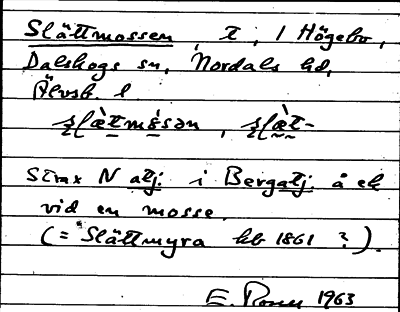 Slättmossen, t, 1 Högebo,
Dalskogs sn, Nordals hd,
Älvsb. l.
slæ̀tmósən, slæ̀t-
Strax N atj. i Bergatj. å ek
vid en mosse.
(= *Slättmyra hb 1861 ?).
1963